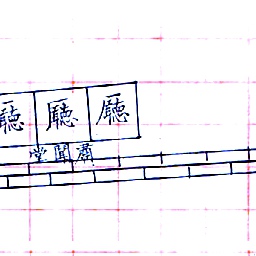 廳 廳 廳
堂聞肅